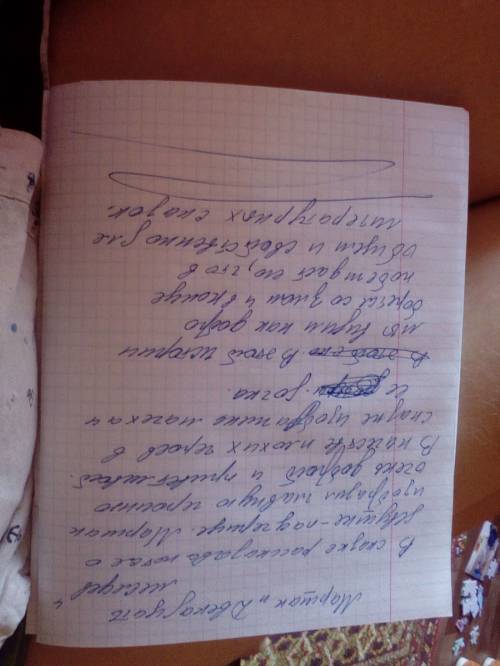 Маршак „Двенадцать
месецев“
В сказке рассказывалось о
девушке-падчерице. Маршак
изобразил главную героиню
очень доброй и приветливой.
В качестве плохих героев в
сказке изображено мачеха и
её дочка.
В этой истории
мы видим как добро
борется со злом и в конце
побеждает его, что в
общем и свойственно для
литературных сказок.